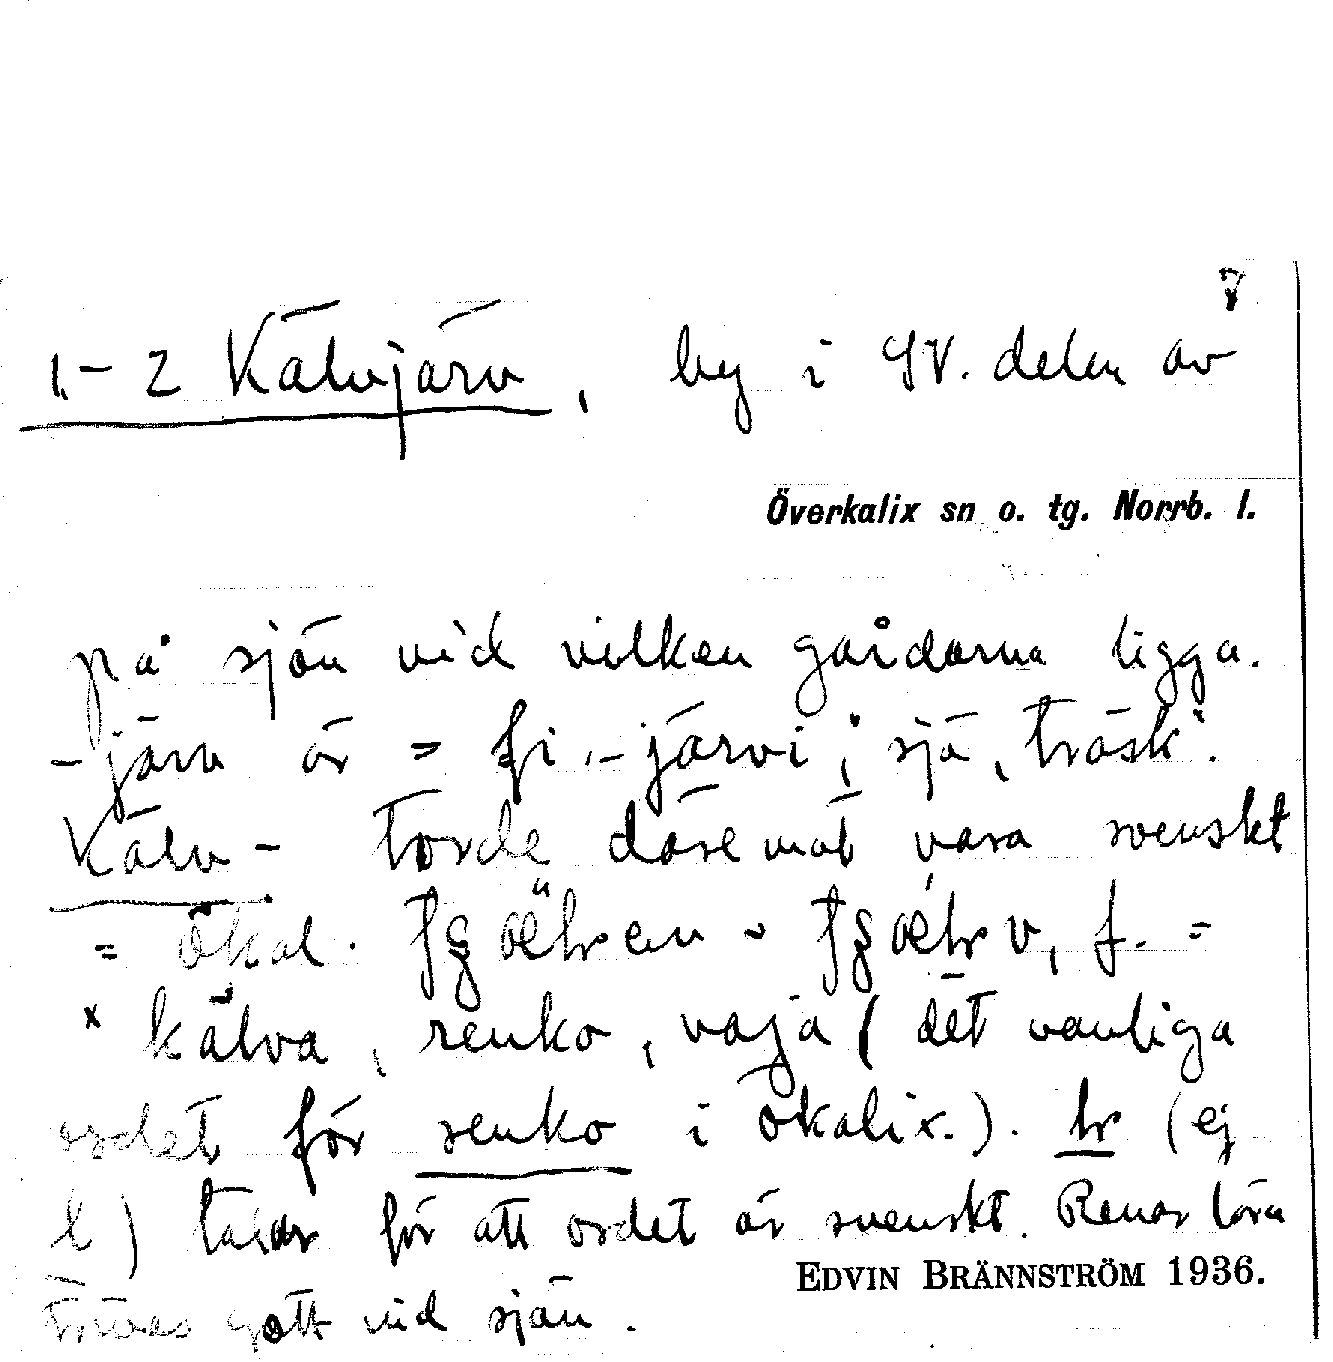 7
1.-2 Kälvjärv, by i SV. delen av
Överkalix sn o. tg. Norrb. l.
på sjön vid vilken gårdarna ligga.
-järv är = fi. -järvi, sjö, träsk.
Kälv- torde däremot vara svenskt
= ökal. f. =
× kälva, renko, vaja (det vanliga
ordet för renko i ökalix.). (ej
l) talar för att ordet är svenskt. Renar lära
trivas gott vid sjön.
EDVIN BRÄNNSTRÖM 1936.